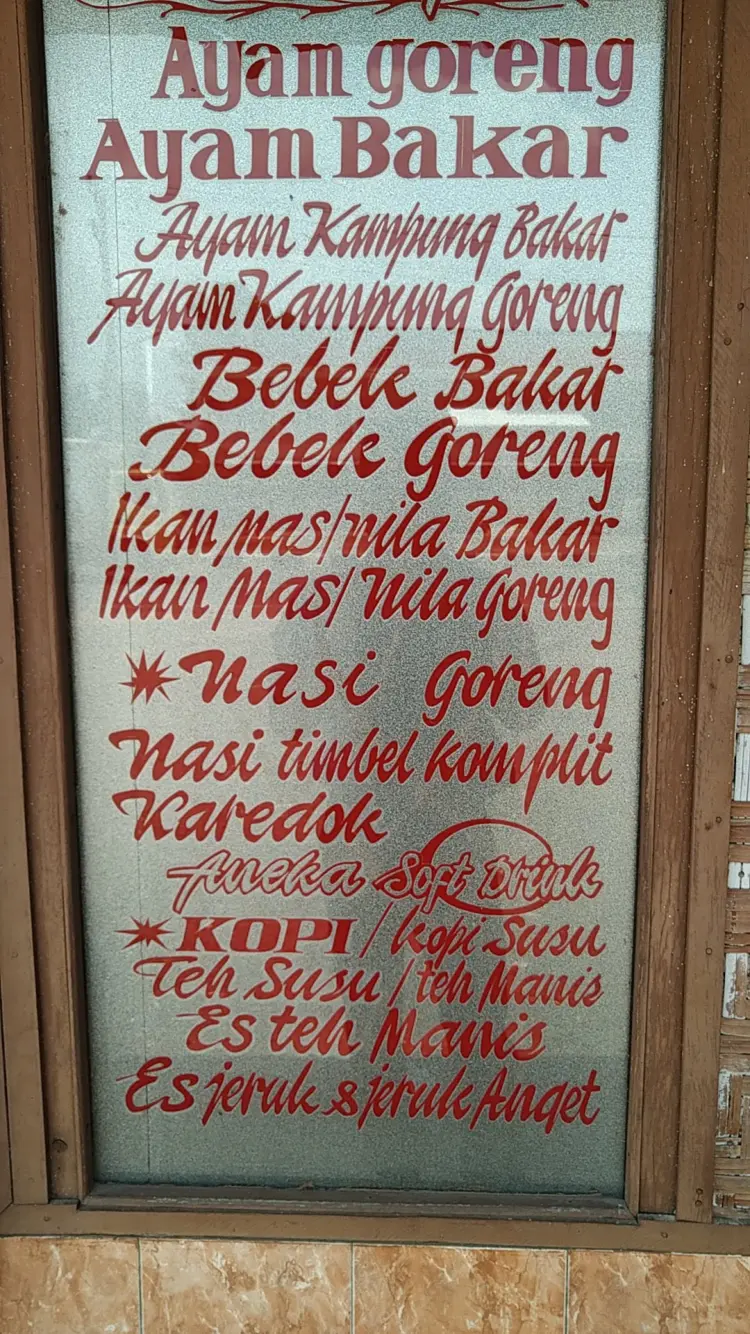 Ayam goreng
Ayam Bakar
Ayam Kampung Bakar
Ayam Kampung Goreng
Bebek Bakar
Bebek Goreng
Ikan mas/nila Bakar
Ikan Mas/Nila Goreng
Nasi Goreng
Nasi timbel komplit
Karedok
Aneka Soft Drink
KOPI / kopi Susu
Teh Susu / teh Manis
Es teh Manis
Es jeruk & jeruk Anget